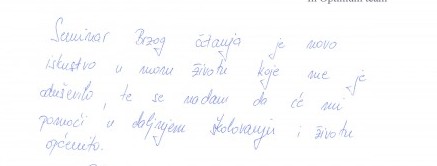 m Optimum team
Seminar Brzog čitanja je novo
iskustvo u mom životu koje me je
oduševilo, te se nadam da će mi
pomoći u daljnjem školovanju i životu
općenito.